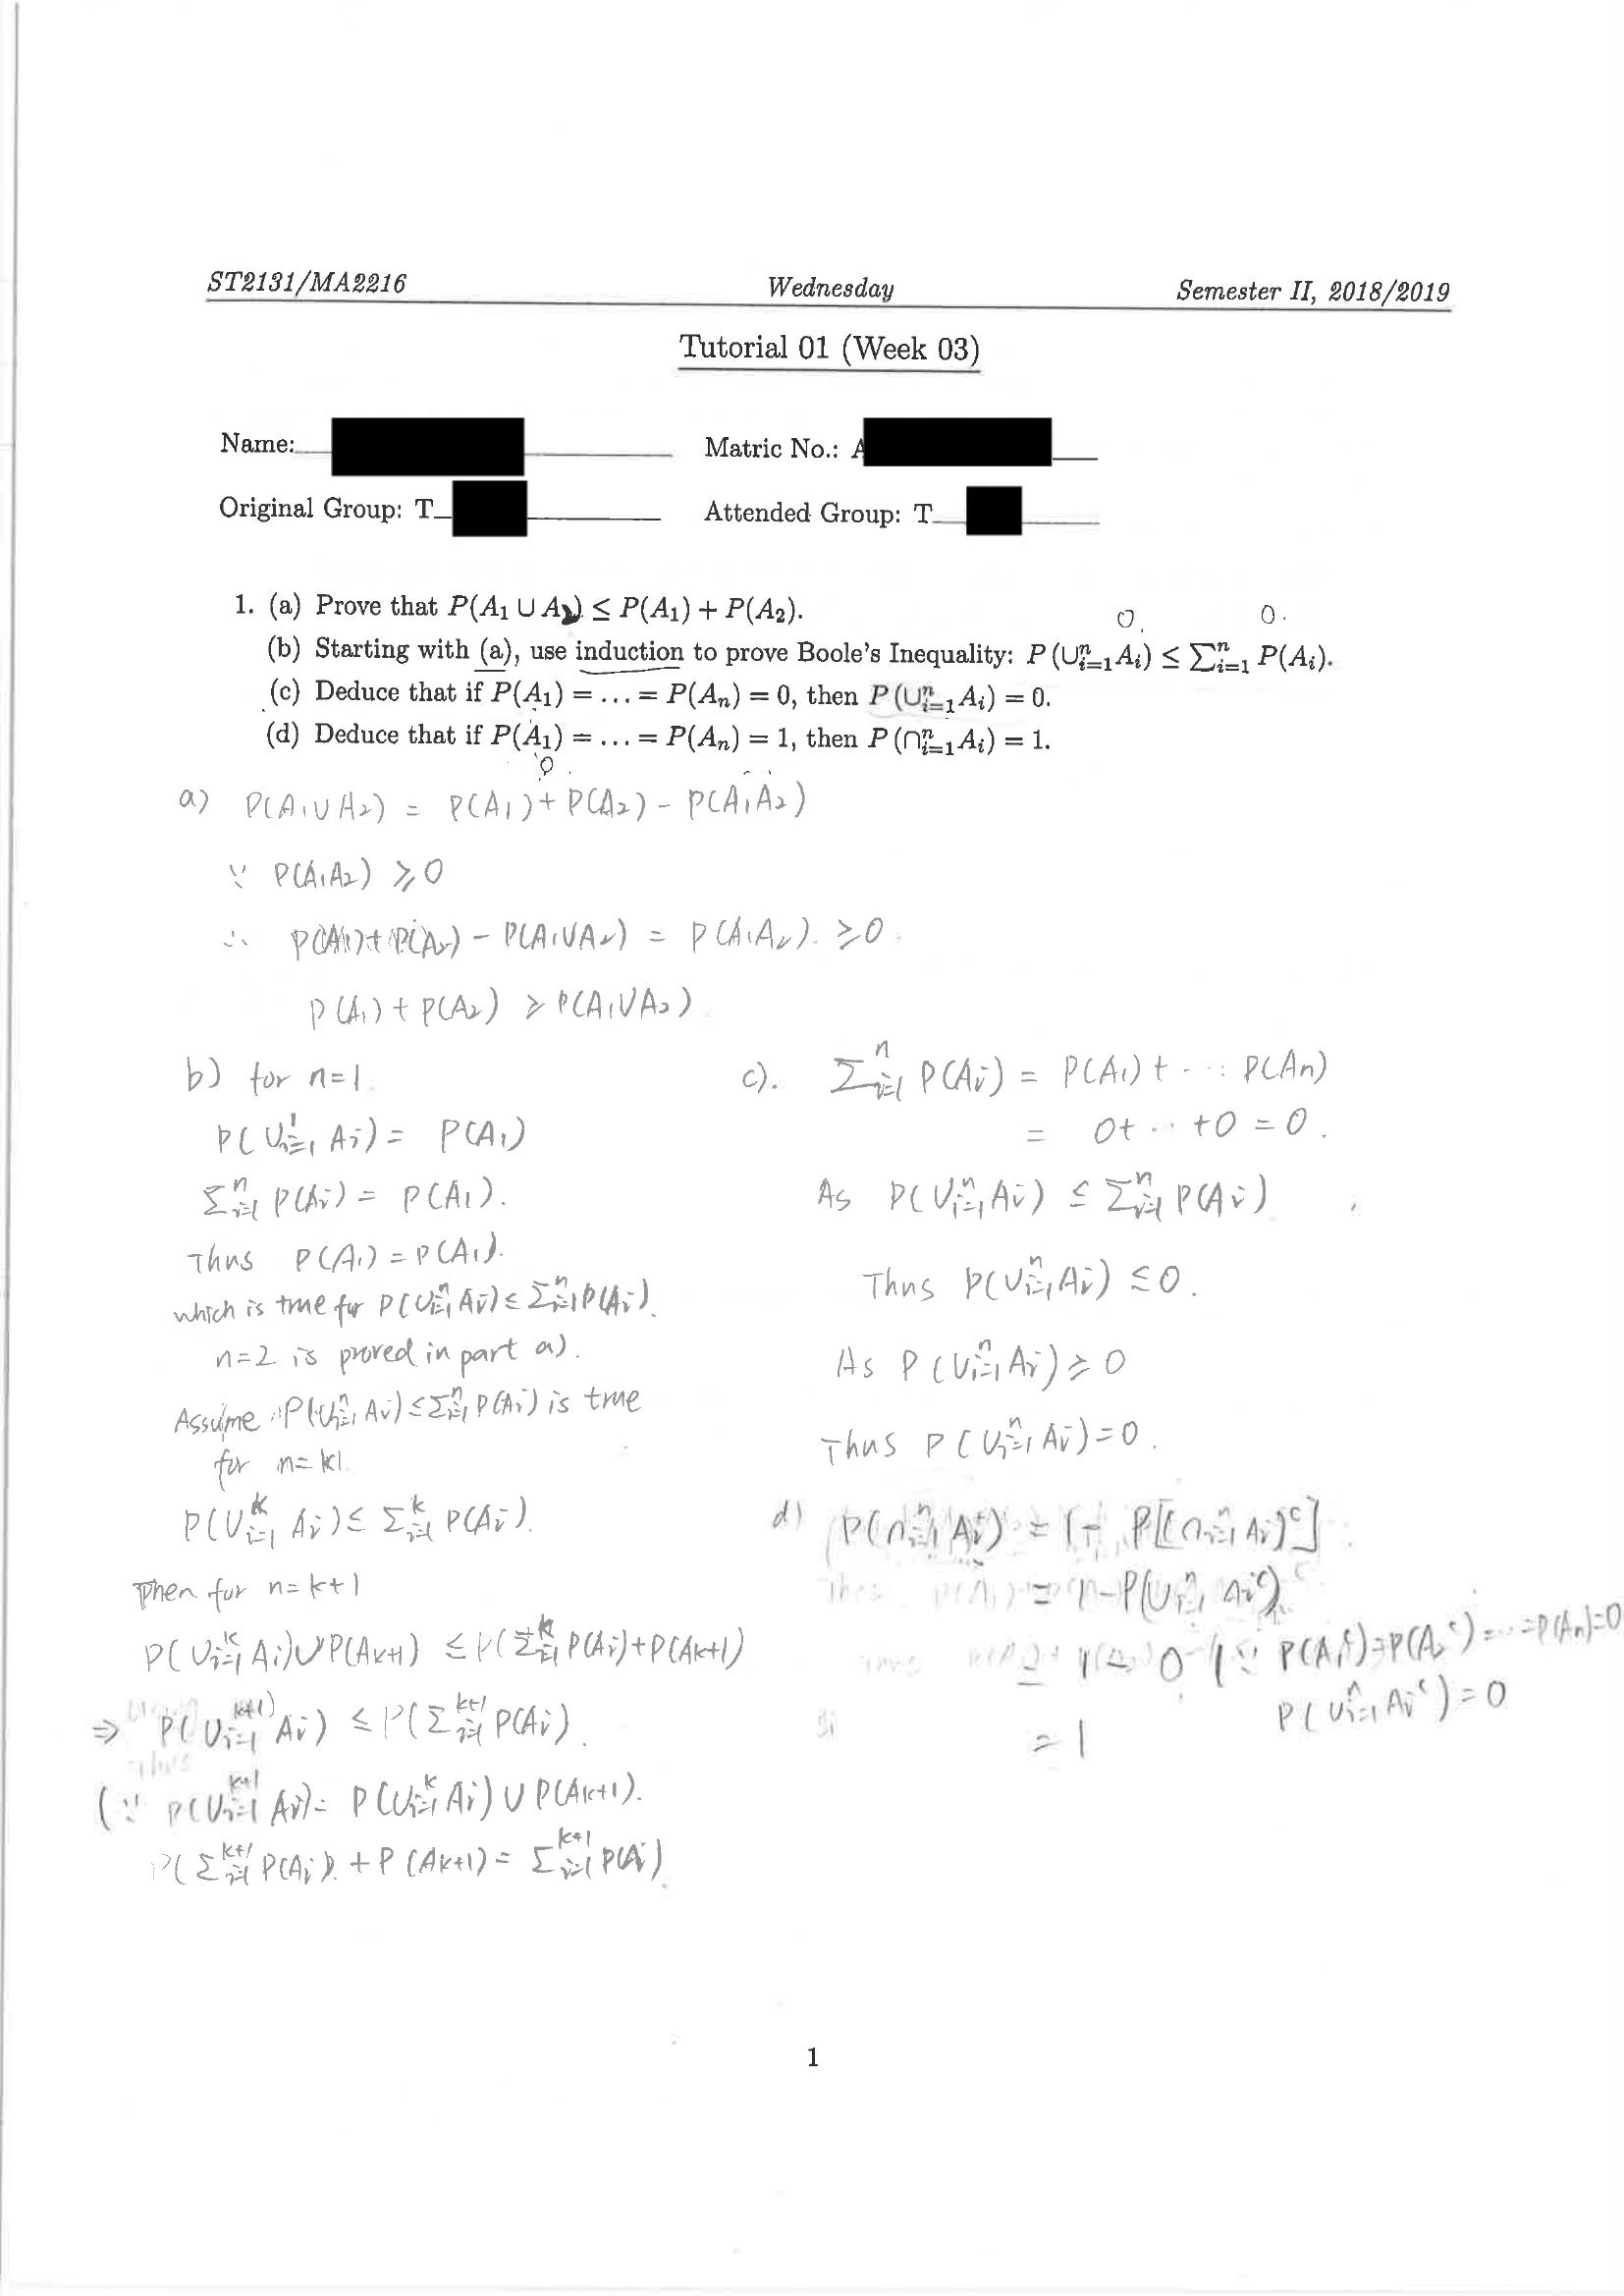 ST2131/MA2216 Wednesday Semester II, 2018/2019
Tutorial 01 (Week 03)
Name: Matric No.: A
Original Group: T Attended Group: T
0. 0.
1. (a) Prove that P(A₁ ∪ A₂) ≤ P(A₁) + P(A₂).
(b) Starting with (a), use induction to prove Boole's Inequality: P(∪ⁿᵢ₌₁Aᵢ) ≤ ∑ⁿᵢ₌₁ P(Aᵢ).
(c) Deduce that if P(A₁) = ... = P(Aₙ) = 0, then P(∪ⁿᵢ₌₁Aᵢ) = 0.
(d) Deduce that if P(A₁) = ... = P(Aₙ) = 1, then P(∩ⁿᵢ₌₁Aᵢ) = 1.
0
a) P(A₁∪A₂) = P(A₁)+P(A₂) - P(A₁A₂)
∵ P(A₁A₂) ≥ 0
∴ P(A₁)+P(A₂) - P(A₁∪A₂) = P(A₁A₂). ≥0.
P(A₁) + P(A₂) ≥ P(A₁∪A₂)
b) for n=1.
P(∪¹ᵢ₌₁ Aᵢ) = P(A₁)
∑ⁿᵢ₌₁ P(Aᵢ) = P(A₁).
Thus P(A₁) = P(A₁).
which is true for P(∪ⁿᵢ₌₁ Aᵢ) ≤ ∑ⁿᵢ₌₁P(Aᵢ).
n=2 is proved in part a).
Assume P(∪ⁿᵢ₌₁ Aᵢ) ≤ ∑ⁿᵢ₌₁ P(Aᵢ) is true
for n=k.
P(∪ᵏᵢ₌₁ Aᵢ) ≤ ∑ᵏᵢ₌₁ P(Aᵢ).
Then for n=k+1
P(∪ᵏᵢ₌₁ Aᵢ)∪P(Aₖ₊₁) ≤ P(∑ᵏᵢ₌₁ P(Aᵢ)+P(Aₖ₊₁)
⇒ P(∪ᵏ⁺¹ᵢ₌₁ Aᵢ) ≤ P(∑ᵏ⁺¹ᵢ₌₁ P(Aᵢ).
(∵ P(∪ᵏ⁺¹ᵢ₌₁ Aᵢ)= P(∪ᵏᵢ₌₁ Aᵢ) ∪ P(Aₖ₊₁).
P(∑ᵏ⁺¹ᵢ₌₁ P(Aᵢ) + P(Aₖ₊₁) = ∑ᵏ⁺¹ᵢ₌₁ P(Aᵢ)
c). ∑ⁿᵢ₌₁ P(Aᵢ) = P(A₁) + ... P(Aₙ)
= 0+ ... +0 = 0.
As P(∪ⁿᵢ₌₁Aᵢ) ≤ ∑ⁿᵢ₌₁ P(Aᵢ)
Thus P(∪ⁿᵢ₌₁Aᵢ) ≤ 0.
As P(∪ⁿᵢ₌₁Aᵢ) ≥ 0
Thus P(∪ⁿᵢ₌₁ Aᵢ) = 0.
d) P(∩ⁿᵢ₌₁ Aᵢ) = 1 - P[(∩ⁿᵢ₌₁ Aᵢ)ᶜ]
= 1-P(∪ⁿᵢ₌₁ Aᵢᶜ)
= 1 - 0 ∵ P(A₁ᶜ)=P(A₂ᶜ)=...=P(Aₙ)=0
P(∪ⁿᵢ₌₁ Aᵢᶜ) = 0
= 1
1